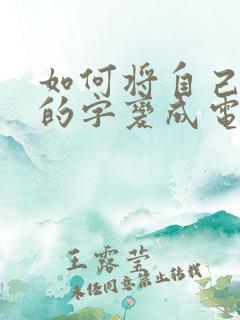 如何将自己
的字变成电
王露莹
未经同意禁止转载